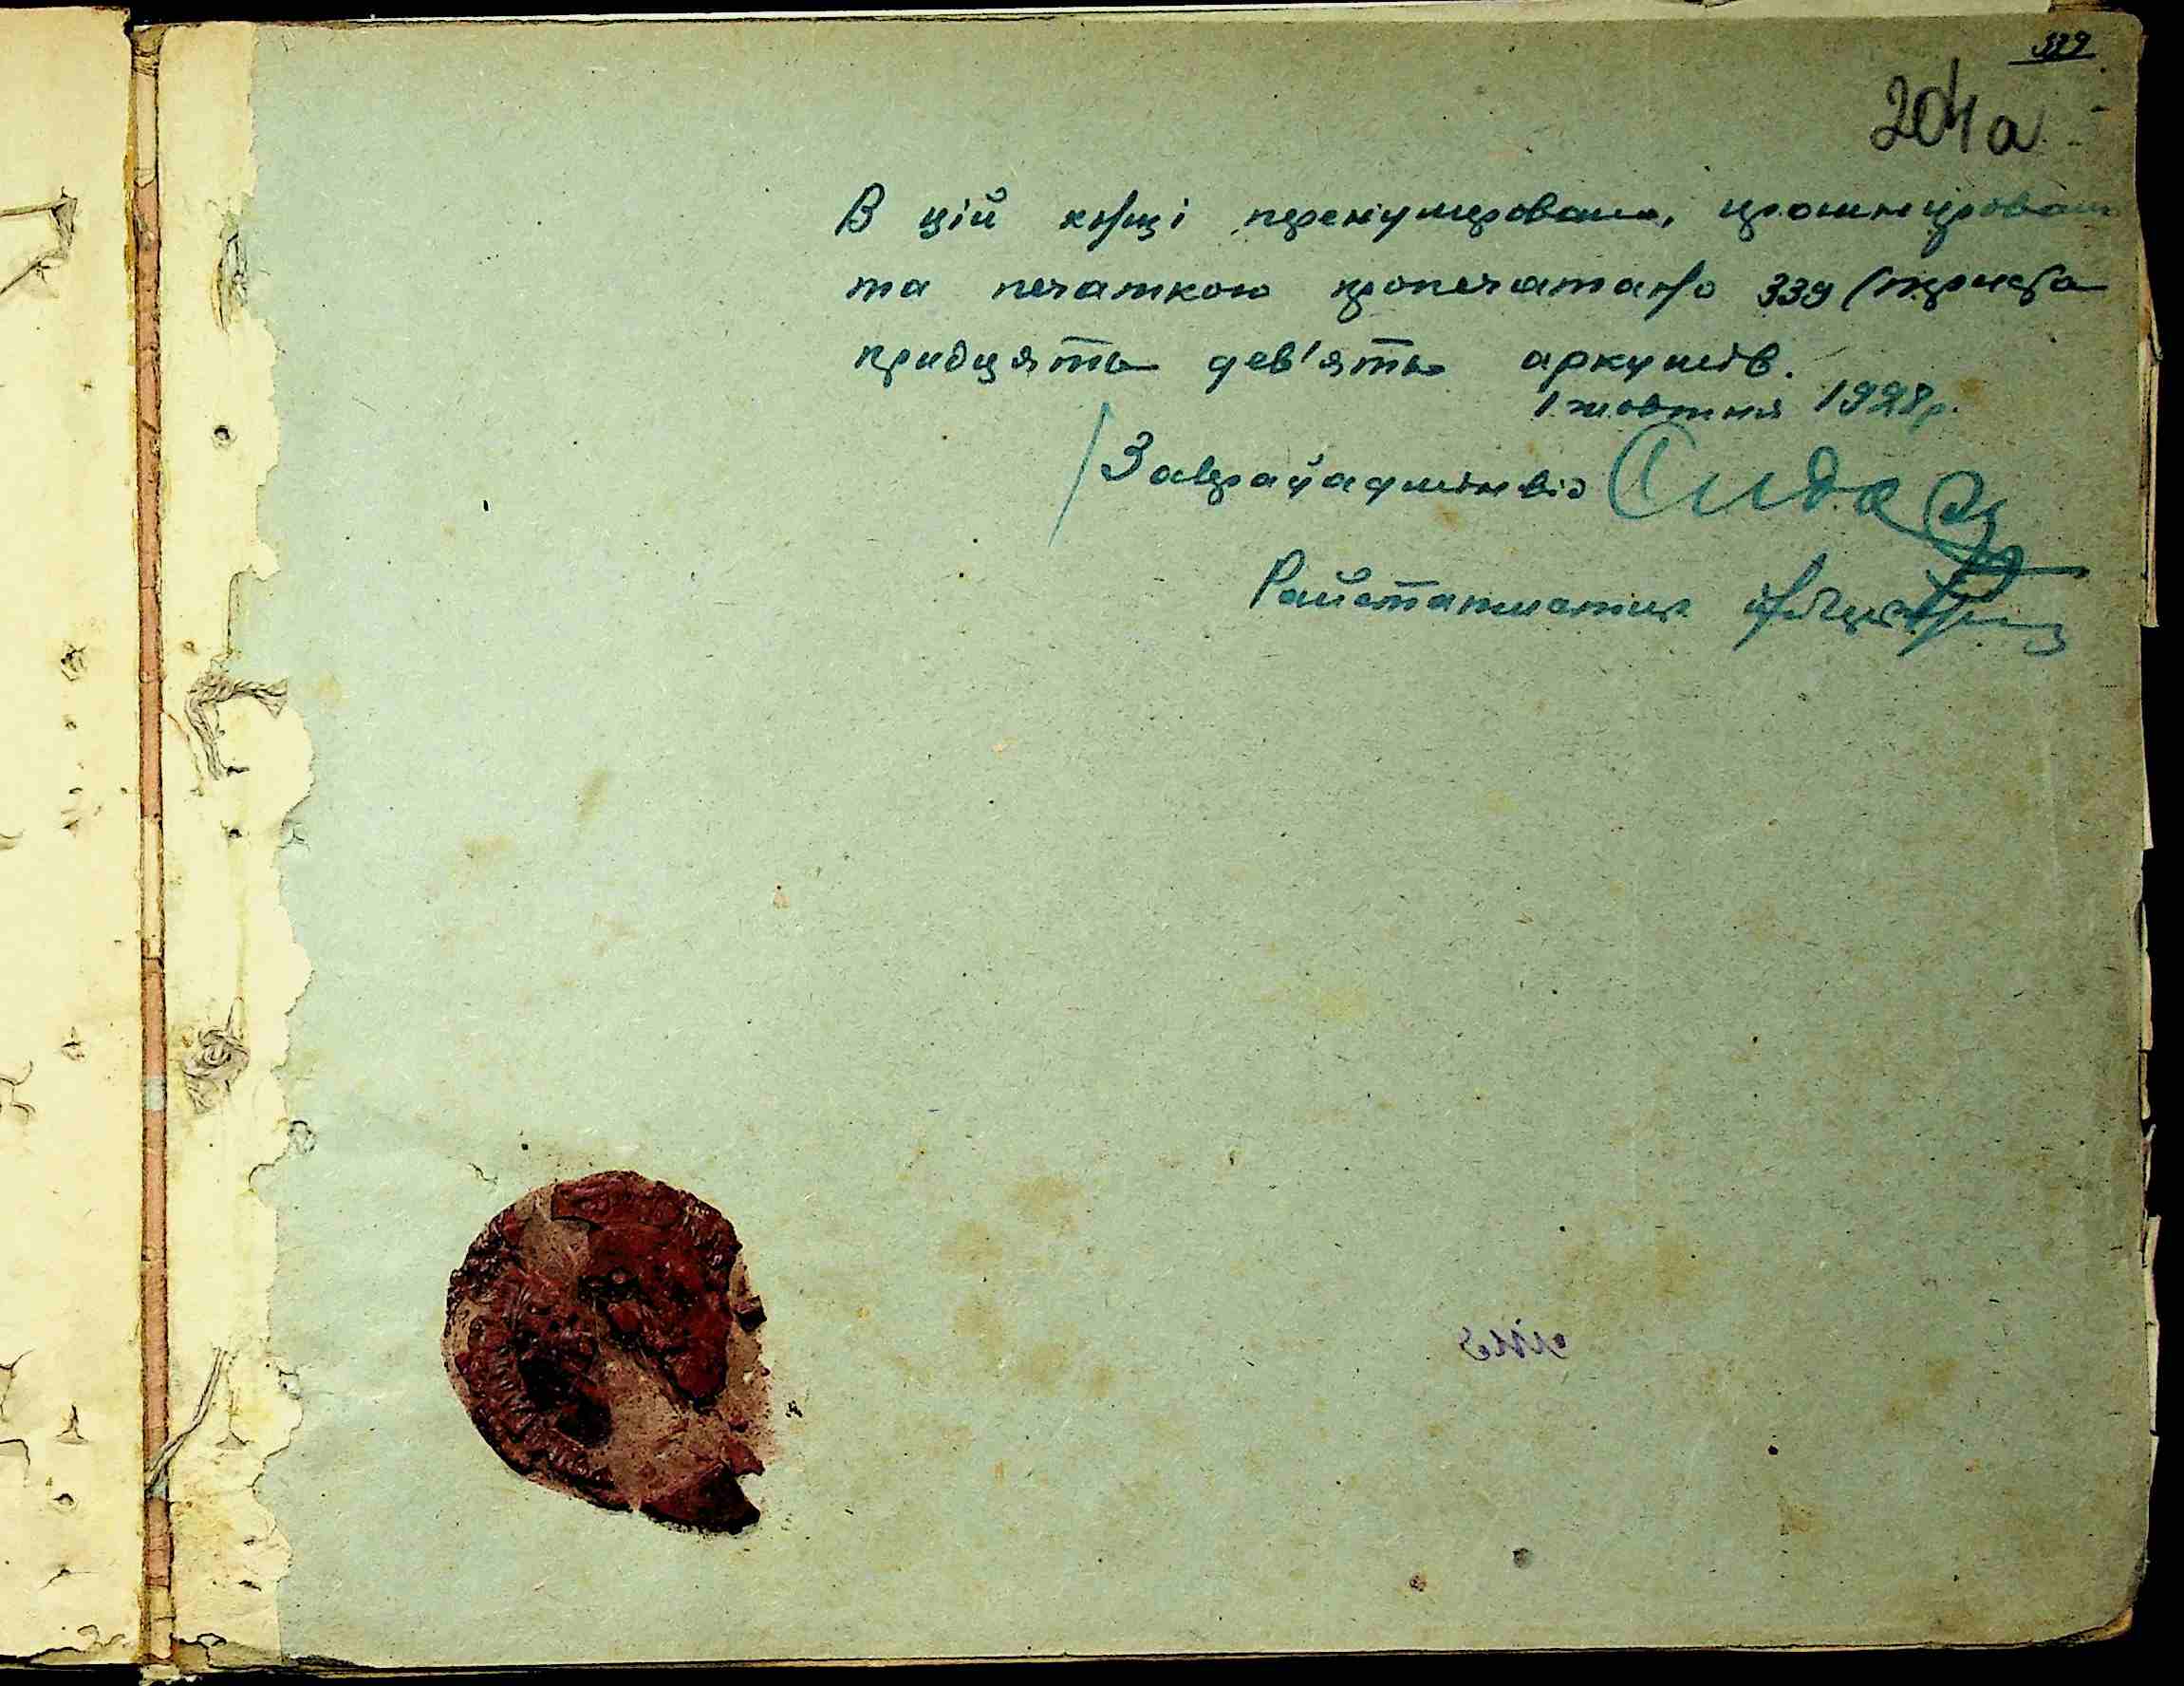 339
204 а
В цій кнізі перенумеровано, прошнуровано
та печаткою пропечатано 339 (триста
тридцять дев'ять аркушів.
1 жовтня 1928 р.
/Заврайадмінвід
Райстатистик